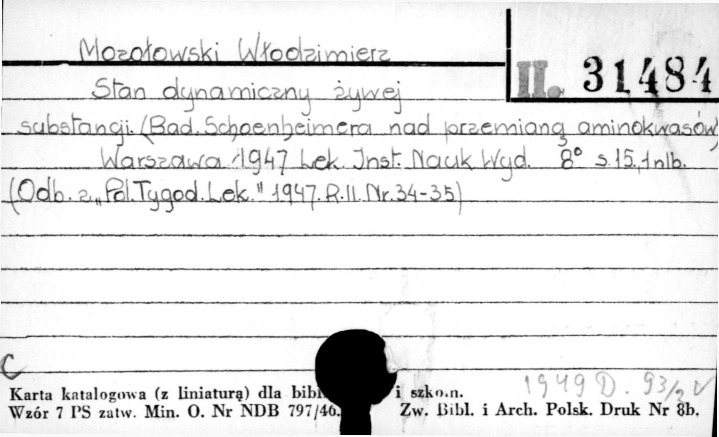 Mozołowski Włodzimierz
II. 31484
Stan dynamiczny żywej
substancji. (Bad. Schoenheimera nad przemianą aminokwasów)
Warszawa 1947 Lek. Inst. Nauk Wyd. 8° s. 15, 1 nlb.
(Odb. z „Pol. Tygod. Lek." 1947. R. II. Nr. 34-35)
C
Karta katalogowa (z liniaturą) dla i szkoln.
Wzór 7 PS zatw. Min. O. Nr NDB 797/46. Zw. Bibl. i Arch. Polsk. Druk Nr 8b.
1949 D. 93/2